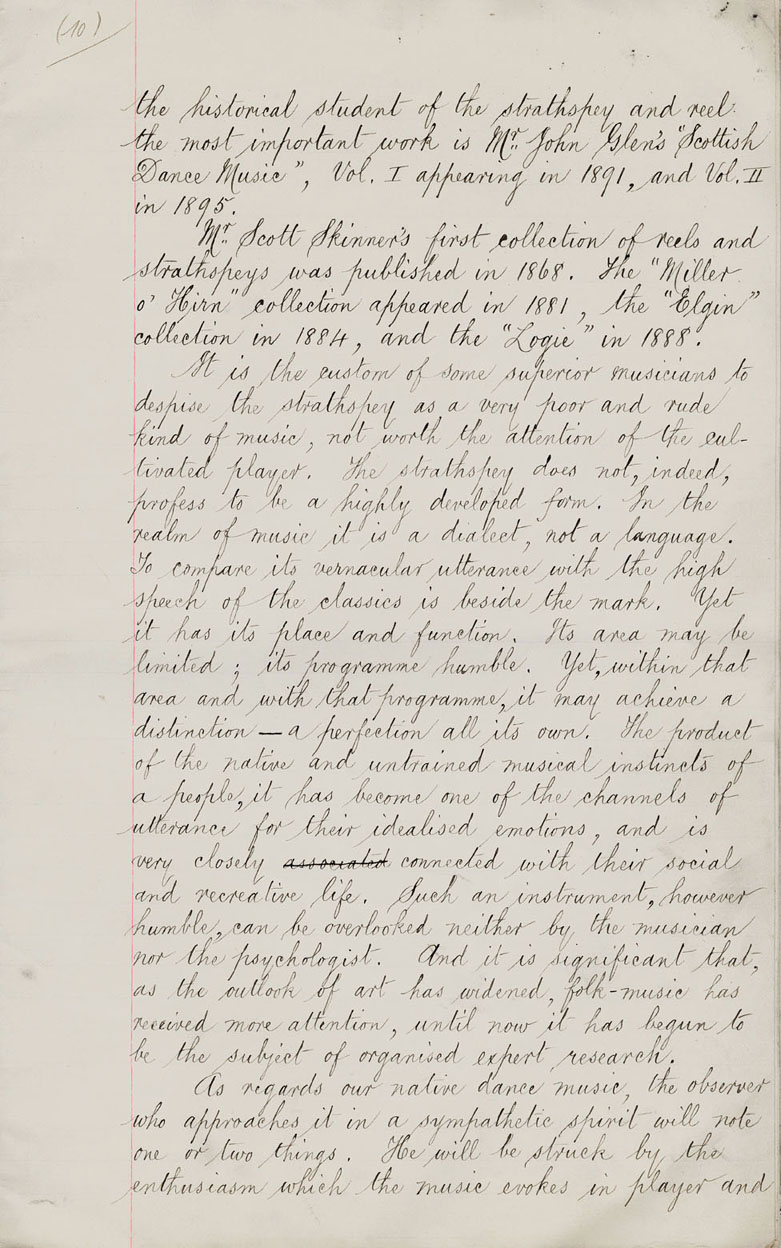 (10)
the historical student of the strathspey and reel
the most important work is Mr. John Glen's "Scottish
Dance Music", Vol. I appearing in 1891, and Vol. II
in 1895.
Mr. Scott Skinner's first collection of reels and
strathspeys was published in 1868. The "Miller
o' Hirn" collection appeared in 1881, the "Elgin"
collection in 1884, and the "Logie" in 1888.
It is the custom of some superior musicians to
despise the strathspey as a very poor and rude
kind of music, not worth the attention of the cul-
tivated player. The strathspey does not, indeed,
profess to be a highly developed form. In the
realm of music it is a dialect, not a language.
To compare its vernacular utterance with the high
speech of the classics is beside the mark. Yet
it has its place and function. Its area may be
limited; its programme humble. Yet, within that
area and with that programme, it may achieve a
distinction — a perfection all its own. The product
of the native and untrained musical instincts of
a people, it has become one of the channels of
utterance for their idealised emotions, and is
very closely associated connected with their social
and recreative life. Such an instrument, however
humble, can be overlooked neither by the musician
nor the psychologist. And it is significant that,
as the outlook of art has widened, folk-music has
received more attention, until now it has begun to
be the subject of organised expert research.
As regards our native dance music, the observer
who approaches it in a sympathetic spirit will note
one or two things. He will be struck by the
enthusiasm which the music evokes in player and